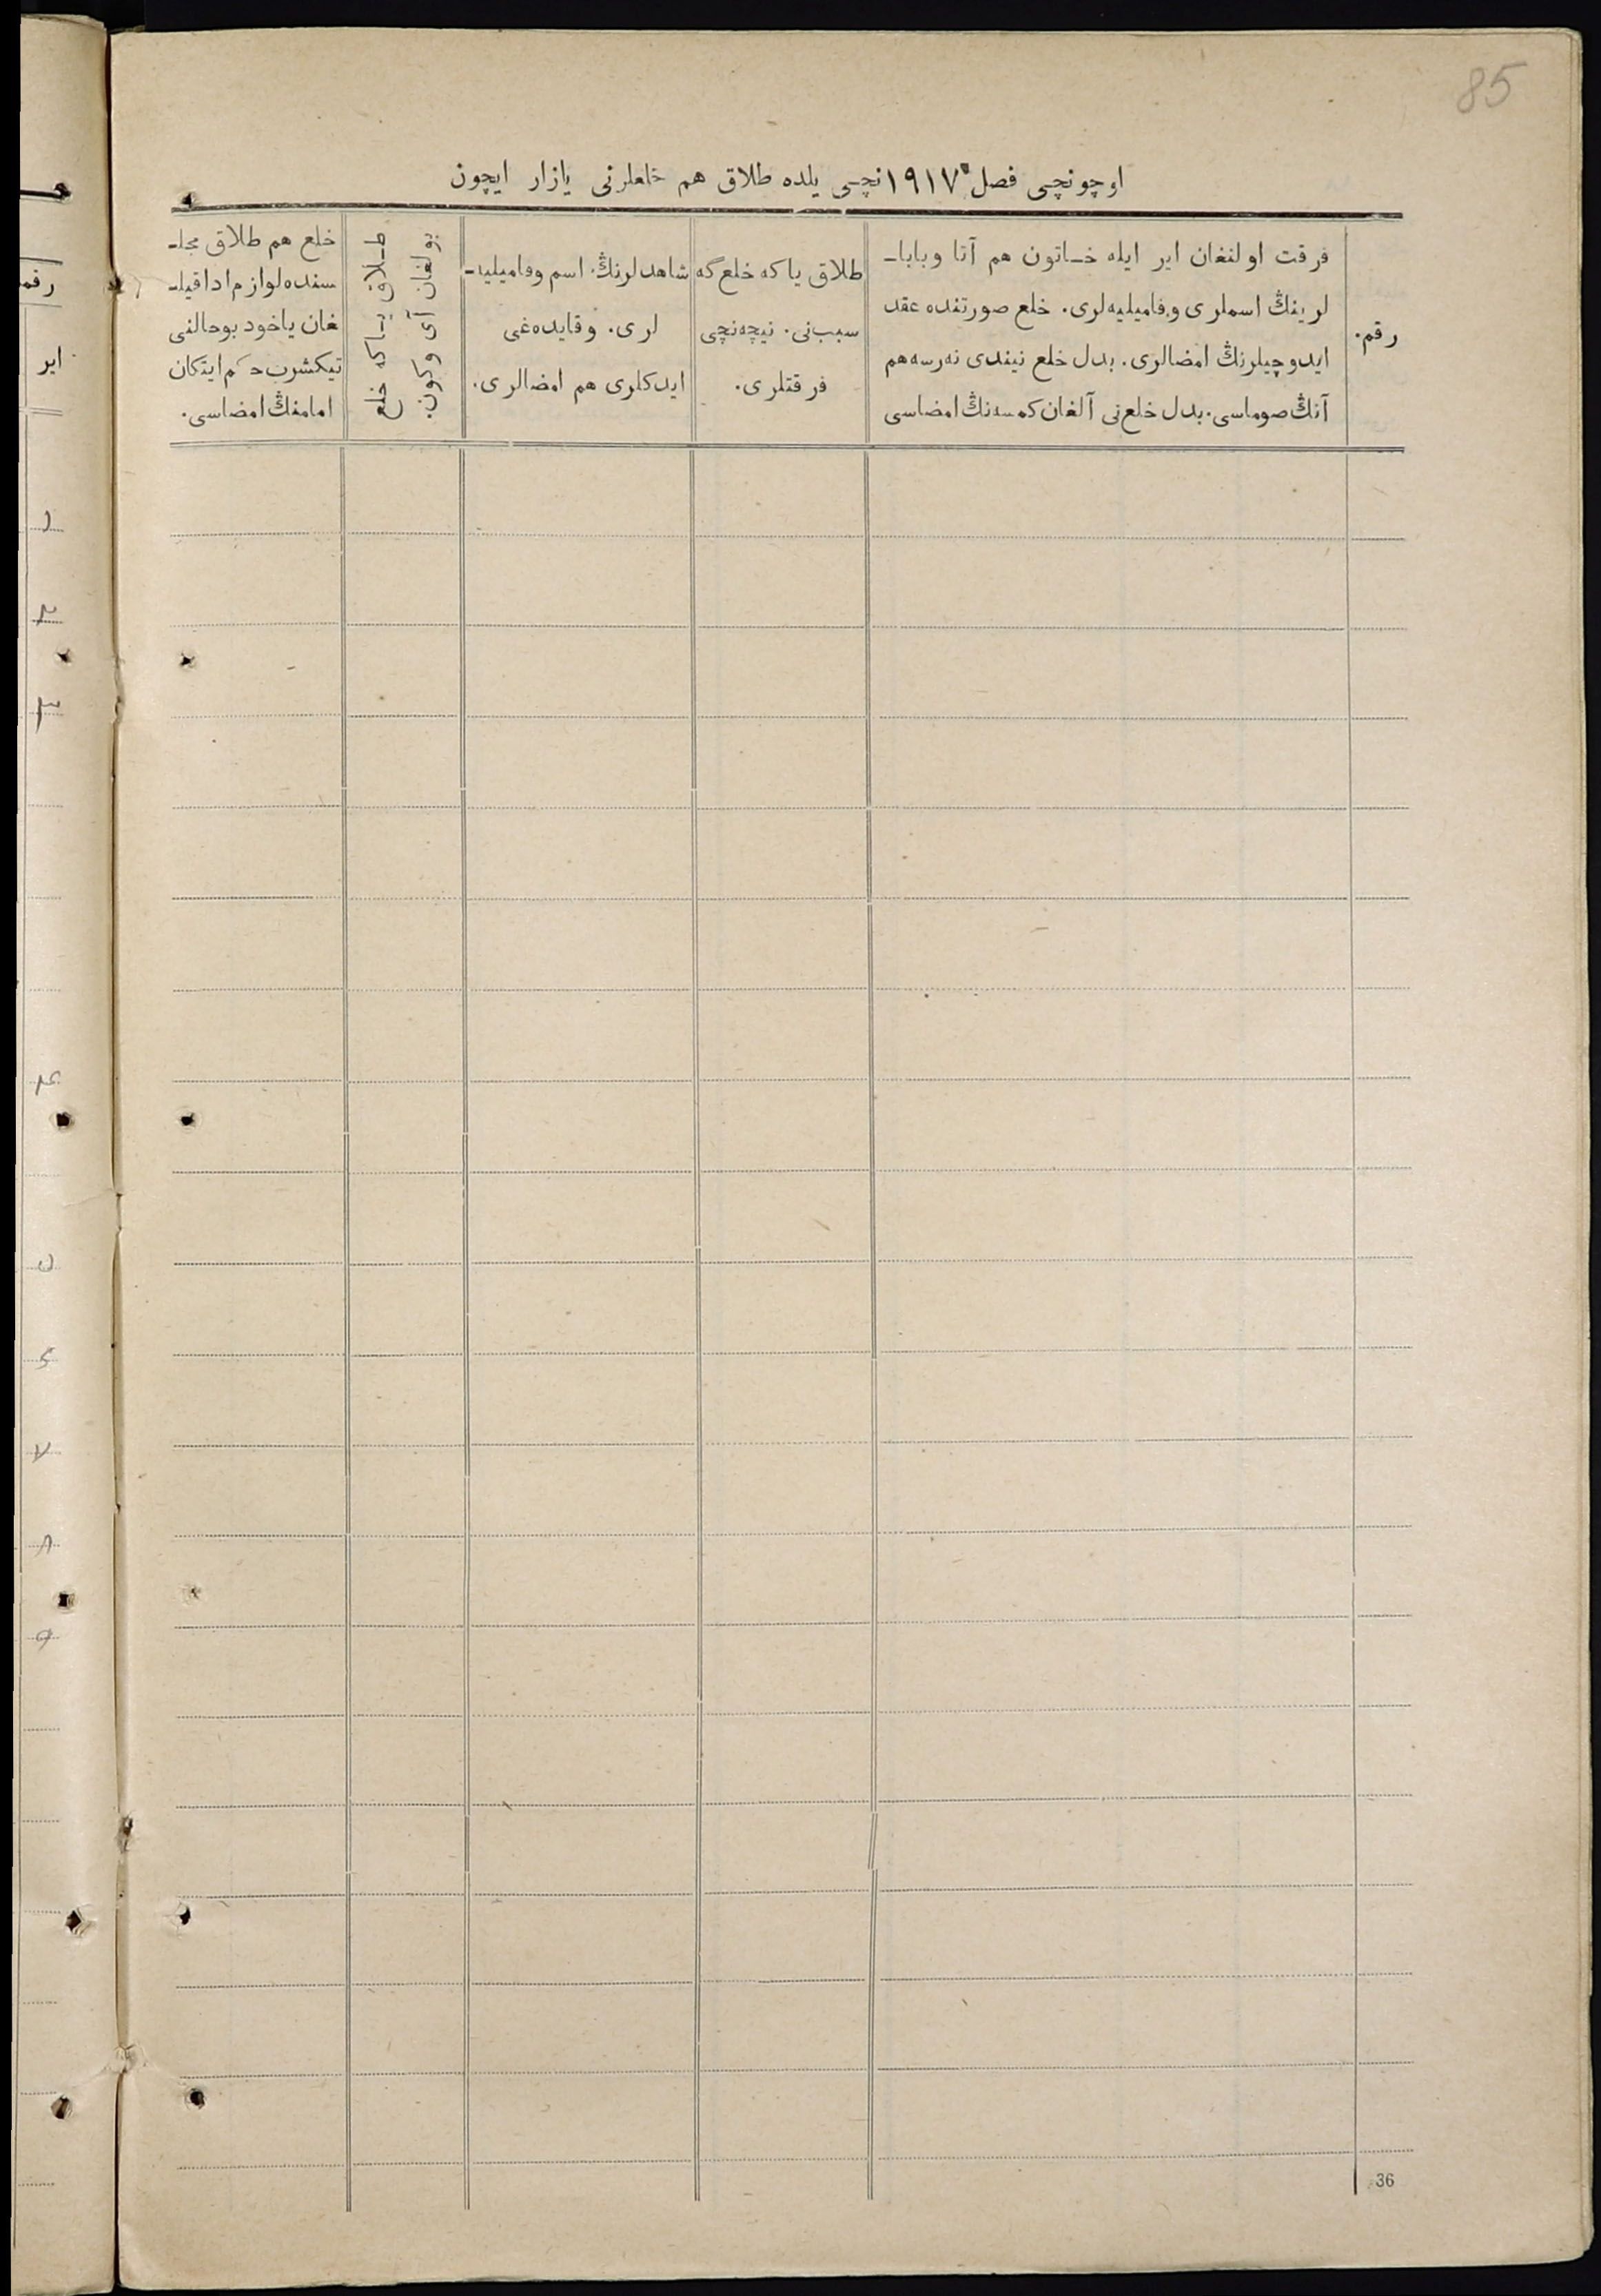 85
اوچونچی فصل ١٩١٧نچی یلده طلاق هم خلعلرنی یازار ایچون
رقم.
فرقت اولنغان ایر ایله خـاتون هم آتا وبابا-
لرینڭ اسملری وفامیلیه‌لری. خلع صورتنده عقد
ایدوچیلرنڭ امضالری. بدل خلع نیندی نه‌رسه هم
آنڭ صوماسی. بدل خلع‌نی آلغان کمسه‌نڭ امضاسی
طلاق یاکه خلع‌گه
سبب‌نی. نیچه‌نچی
فرقتلری.
شاهدلرنڭ اسم وفامیلیه-
لری. وقایده‌غی
ایدکلری هم امضالری.
طـلاق یـاکه خلع
بولغان آی وکون.
خلع هم طلاق مجلـ
سنده لوازم ادا قیلـ
غان یاخود بوحالنی
تیکشرب حکم ایتکان
امامنڭ امضاسی.
36
رقم
ایر
١
٢
٣
۴
۵
٧
٨
٩